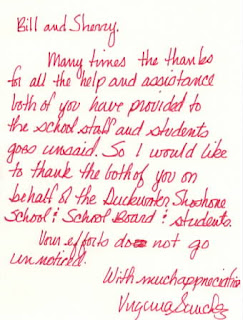 Bill and Sherry,
Many times the thanks
for all the help and assistance
both of you have provided to
the school staff and students
goes unsaid. So I would like
to thank the both of you on
behalf of the Duckwater Shoshone
School & School Board & students.
Your efforts do not go
unnoticed.
With much appreciation
Virginia Sanchez